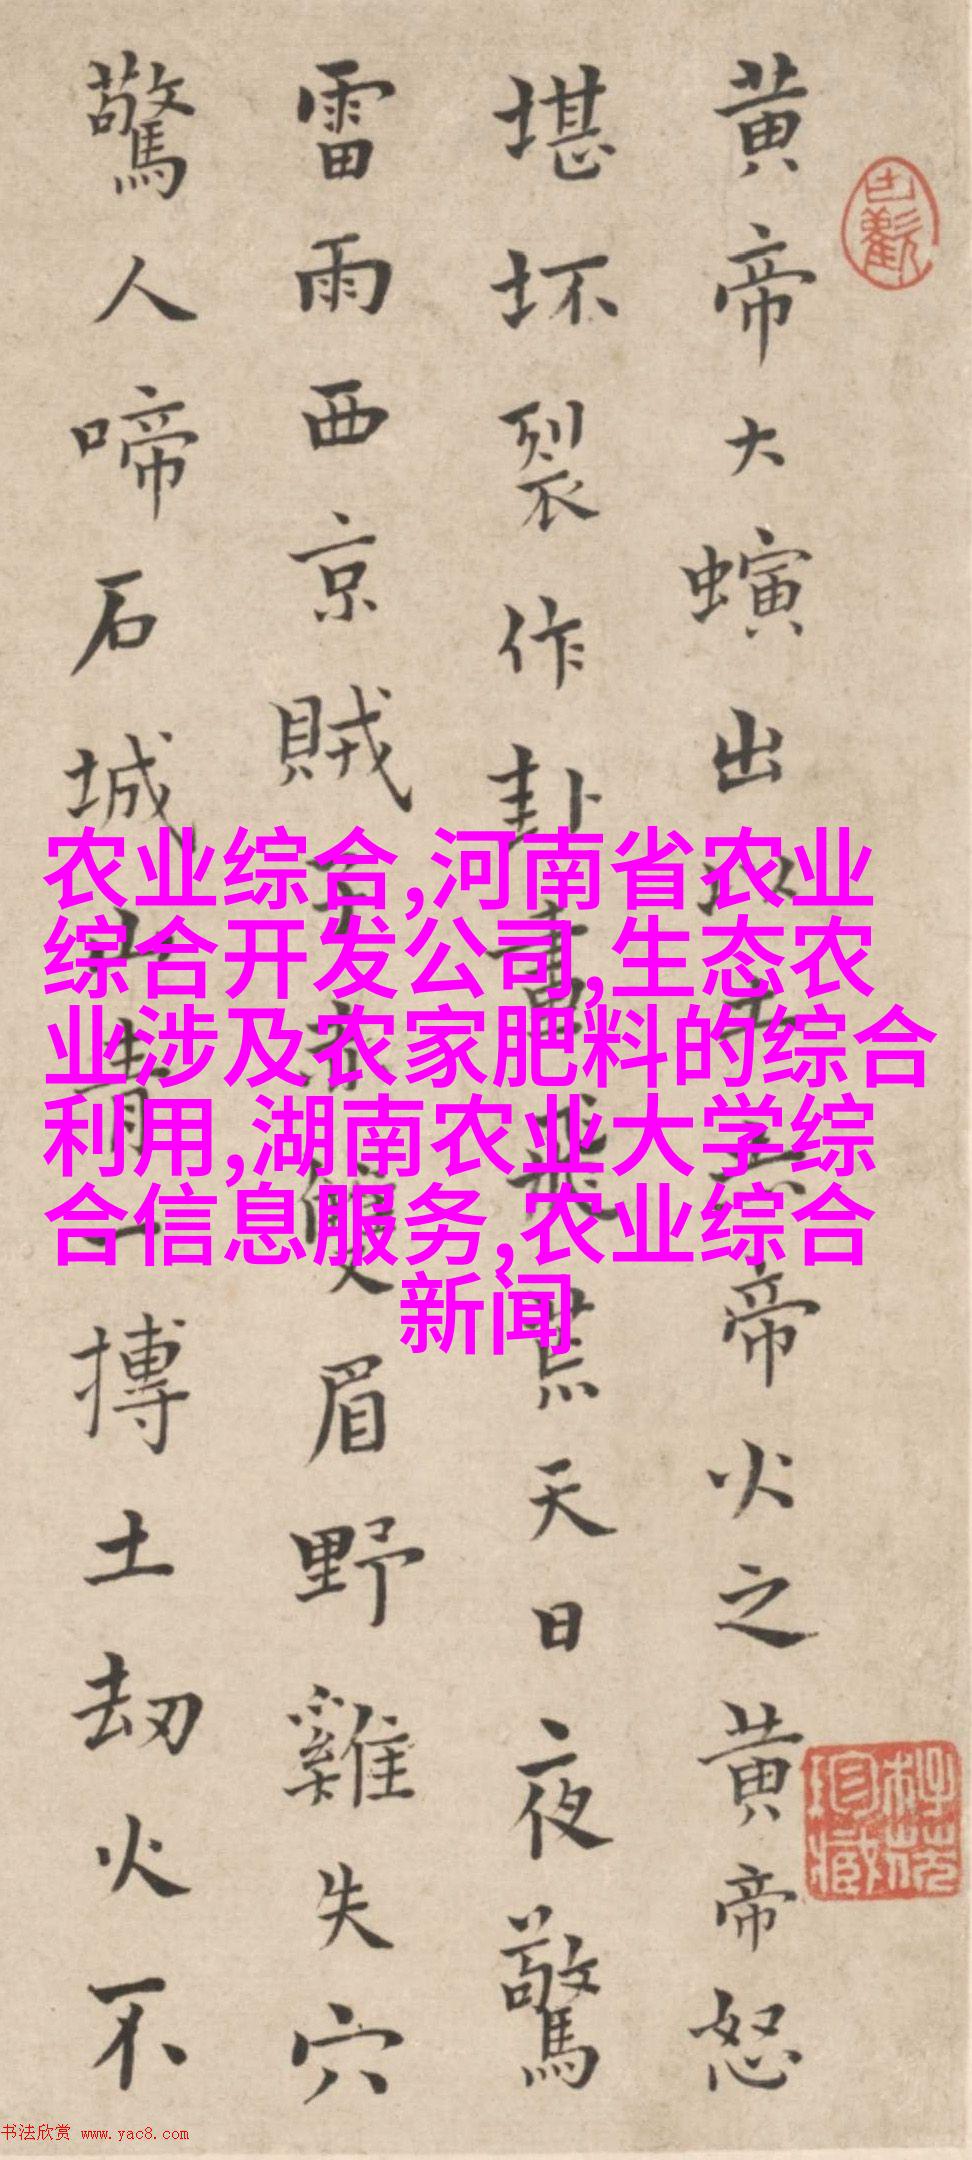 黄帝大螾出以土帝火之黄帝怒
堪坏裂作卦畫飛天日夜驚
雷雨西京賊眉野雞失穴
驚人啼石城山青摶土劫火不
农业综合,河南省农业
综合开发公司,生态农
业涉及农家肥料的综合
利用,湖南农业大学综
合信息服务,农业综合
新闻
书法欣赏 www.yac8.com